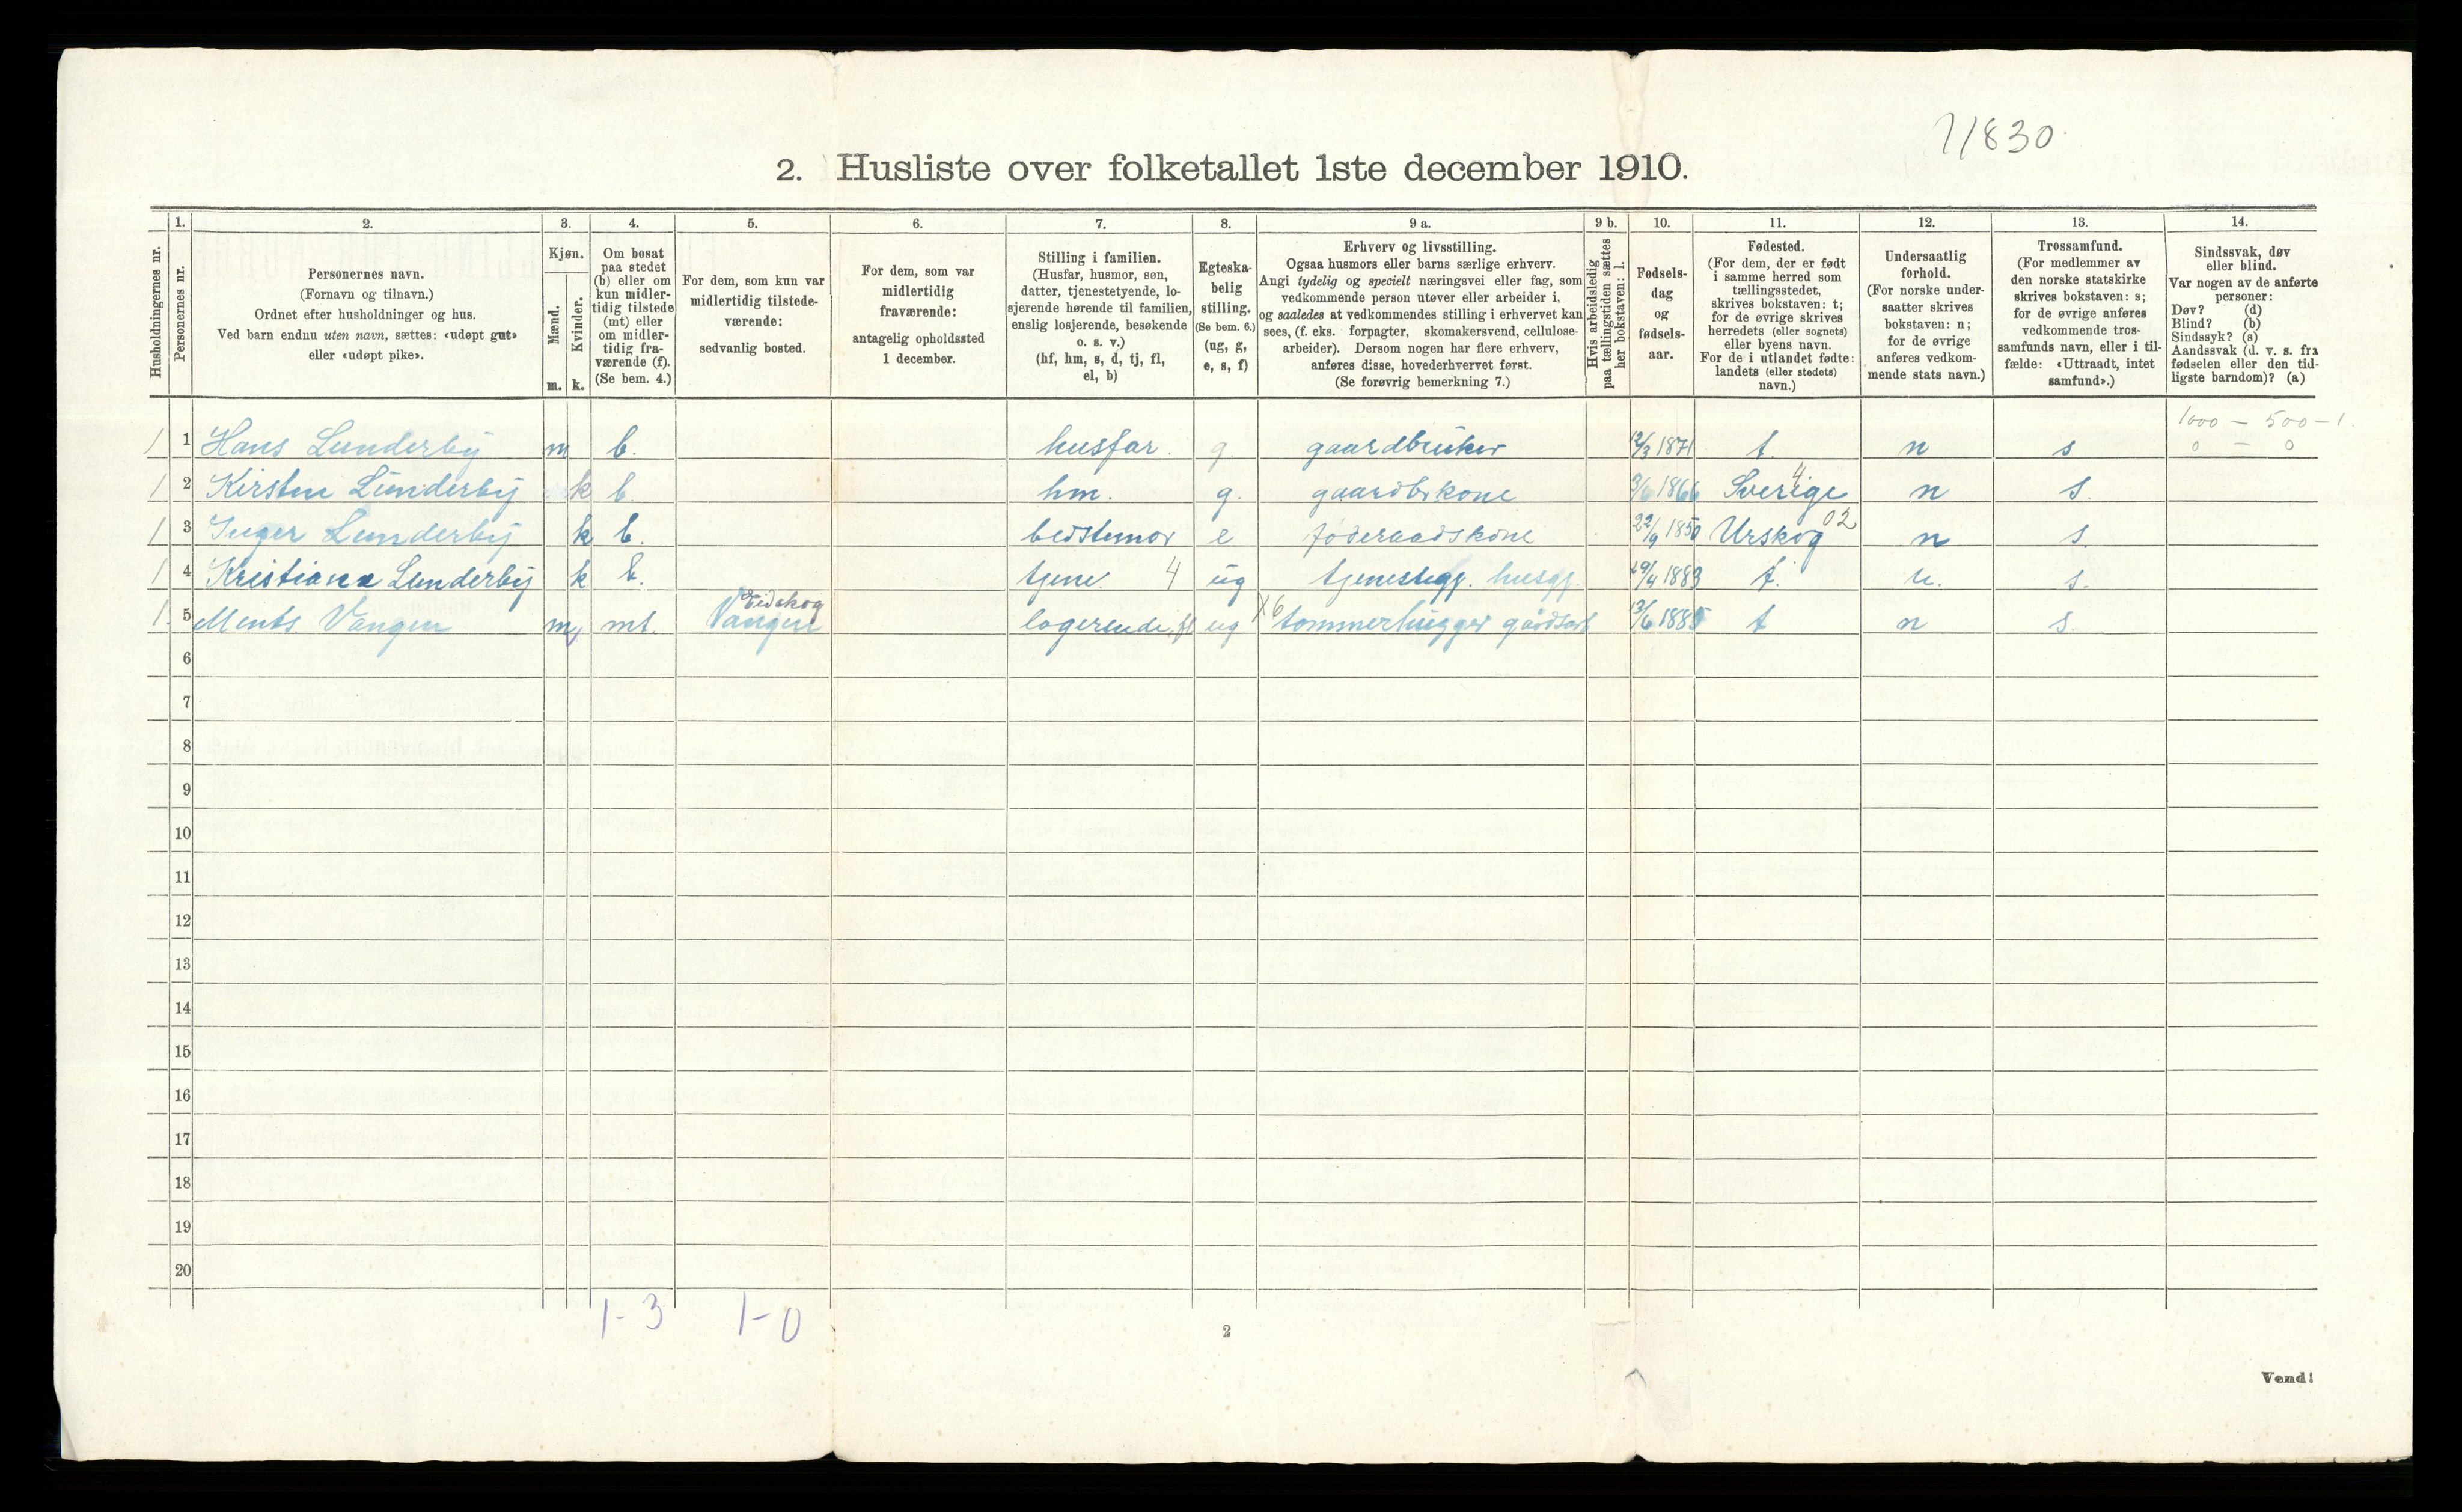 71830
2. Husliste over folketallet 1ste december 1910.
Husholdningernes nr.
1.
Personernes nr.
2.
Personernes navn.
(Fornavn og tilnavn.)
Ordnet efter husholdninger og hus.
Ved barn endnu uten navn, sættes: «udøpt gut»
eller «udøpt pike».
3.
Kjøn.
Mænd.
Kvinder.
m. k.
4.
Om bosat
paa stedet
(b) eller om
kun midler-
tidig tilstede
(mt) eller
om midler-
tidig fra-
værende (f).
(Se bem. 4.)
5.
For dem, som kun var
midlertidig tilstede-
værende:
sedvanlig bosted.
6.
For dem, som var
midlertidig
fraværende:
antagelig opholdssted
1 december.
7.
Stilling i familien.
(Husfar, husmor, søn,
datter, tjenestetyende, lo-
sjerende hørende til familien,
enslig losjerende, besøkende
o. s. v.)
(hf, hm, s, d, tj, fl,
el, b)
8.
Egteska-
belig
stilling.
(Se bem. 6.)
(ug, g,
e, s, f)
9 a.
Erhverv og livsstilling.
Ogsaa husmors eller barns særlige erhverv.
Angi tydelig og specielt næringsvei eller fag, som
vedkommende person utøver eller arbeider i,
og saaledes at vedkommendes stilling i erhvervet kan
sees, (f. eks. forpagter, skomakersvend, cellulose-
arbeider). Dersom nogen har flere erhverv,
anføres disse, hovederhvervet først.
(Se forøvrig bemerkning 7.)
9 b.
Hvis arbeidsledig
paa tællingstiden sættes
her bokstaven: l.
10.
Fødsels-
dag
og
fødsels-
aar.
11.
Fødested.
(For dem, der er født
i samme herred som
tællingsstedet,
skrives bokstaven: t;
for de øvrige skrives
herredets (eller sognets)
eller byens navn.
For de i utlandet fødte:
landets (eller stedets)
navn.)
12.
Undersaatlig
forhold.
(For norske under-
saatter skrives
bokstaven: n;
for de øvrige
anføres vedkom-
mende stats navn.)
13.
Trossamfund.
(For medlemmer av
den norske statskirke
skrives bokstaven: s;
for de øvrige anføres
vedkommende tros-
samfunds navn, eller i til-
fælde: «Uttraadt, intet
samfund».)
14.
Sindssvak, døv
eller blind.
Var nogen av de anførte
personer:
Døv? (d)
Blind? (b)
Sindssyk? (s)
Aandssvak (d. v. s. fra
fødselen eller den tid-
ligste barndom)? (a)
1000 – 500 – 1
1 1 Hans Lunderby m b. husfar. g. gaardbruker 12/3 1871 t. n s 0 – 0
1 2 Kirsten Lunderby k b. hm. g. gaardbrkone 3/6 1866 Sverige 4 n s.
1 3 Inger Lunderby k b. bedstemor e føderaadskone 22/9 1850 Urskog 02 n s.
1 4 Kristiane Lunderby k b. tjene. 4 ug tjenestegj. husgj. 29/4 1883 t. n. s.
Eidskog
1. 5 Ments Vangen m mt. Vangen logerende, fl ug X6 tømmerhugger gårdsarb 13/6 1885 t n s.
6
7
8
9
10
11
12
13
14
15
16
17
18
19
20
1-3 1-0
2
Vend!